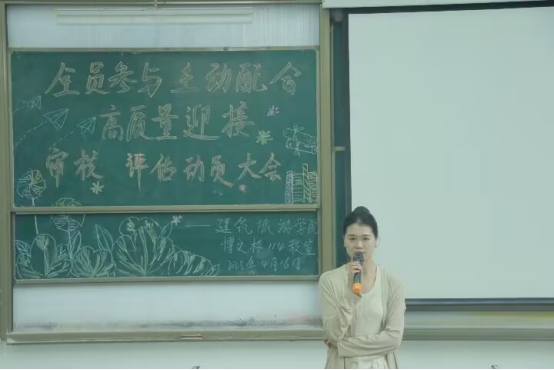 全员参与 主动配合
高质量迎接
审核 评估动员大会
——建筑旅游学院
博文楼114教室